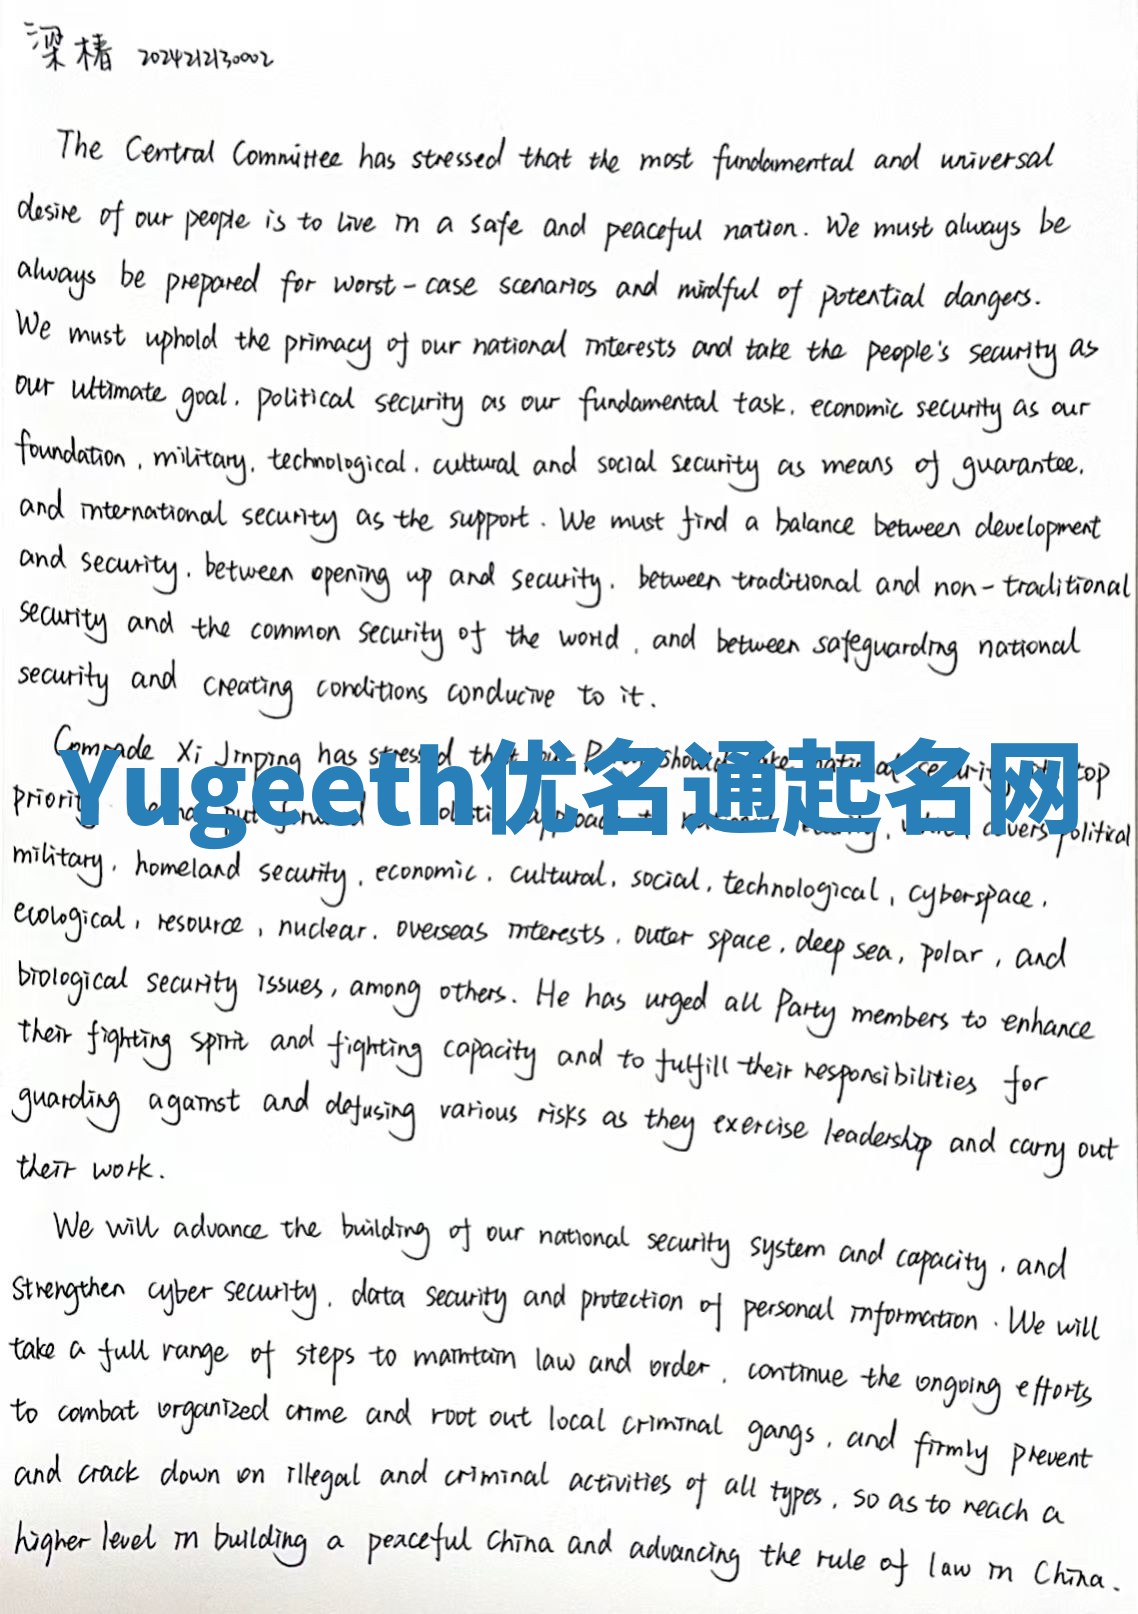 梁椿 2024212130002
The Central Committee has stressed that the most fundamental and universal
desire of our people is to live in a safe and peaceful nation. We must always be
always be prepared for worst-case scenarios and mindful of potential dangers.
We must uphold the primacy of our national interests and take the people's security as
our ultimate goal, political security as our fundamental task, economic security as our
foundation, military, technological, cultural and social security as means of guarantee,
and international security as the support. We must find a balance between development
and security, between opening up and security, between traditional and non-traditional
security and the common security of the world, and between safeguarding national
security and creating conditions conducive to it.
Comrade Xi Jinping has stressed that our should take national security top
Yugeeth优名通起名网
priority and put forward approach to national covers political
military, homeland security, economic, cultural, social, technological, cyberspace,
ecological, resource, nuclear, overseas interests, outer space, deep sea, polar, and
biological security issues, among others. He has urged all Party members to enhance
their fighting spirit and fighting capacity and to fulfill their responsibilities for
guarding against and defusing various risks as they exercise leadership and carry out
their work.
We will advance the building of our national security system and capacity, and
strengthen cyber security, data security and protection of personal information. We will
take a full range of steps to maintain law and order, continue the ongoing efforts
to combat organized crime and root out local criminal gangs, and firmly prevent
and crack down on illegal and criminal activities of all types, so as to reach a
higher level in building a peaceful China and advancing the rule of law in China.